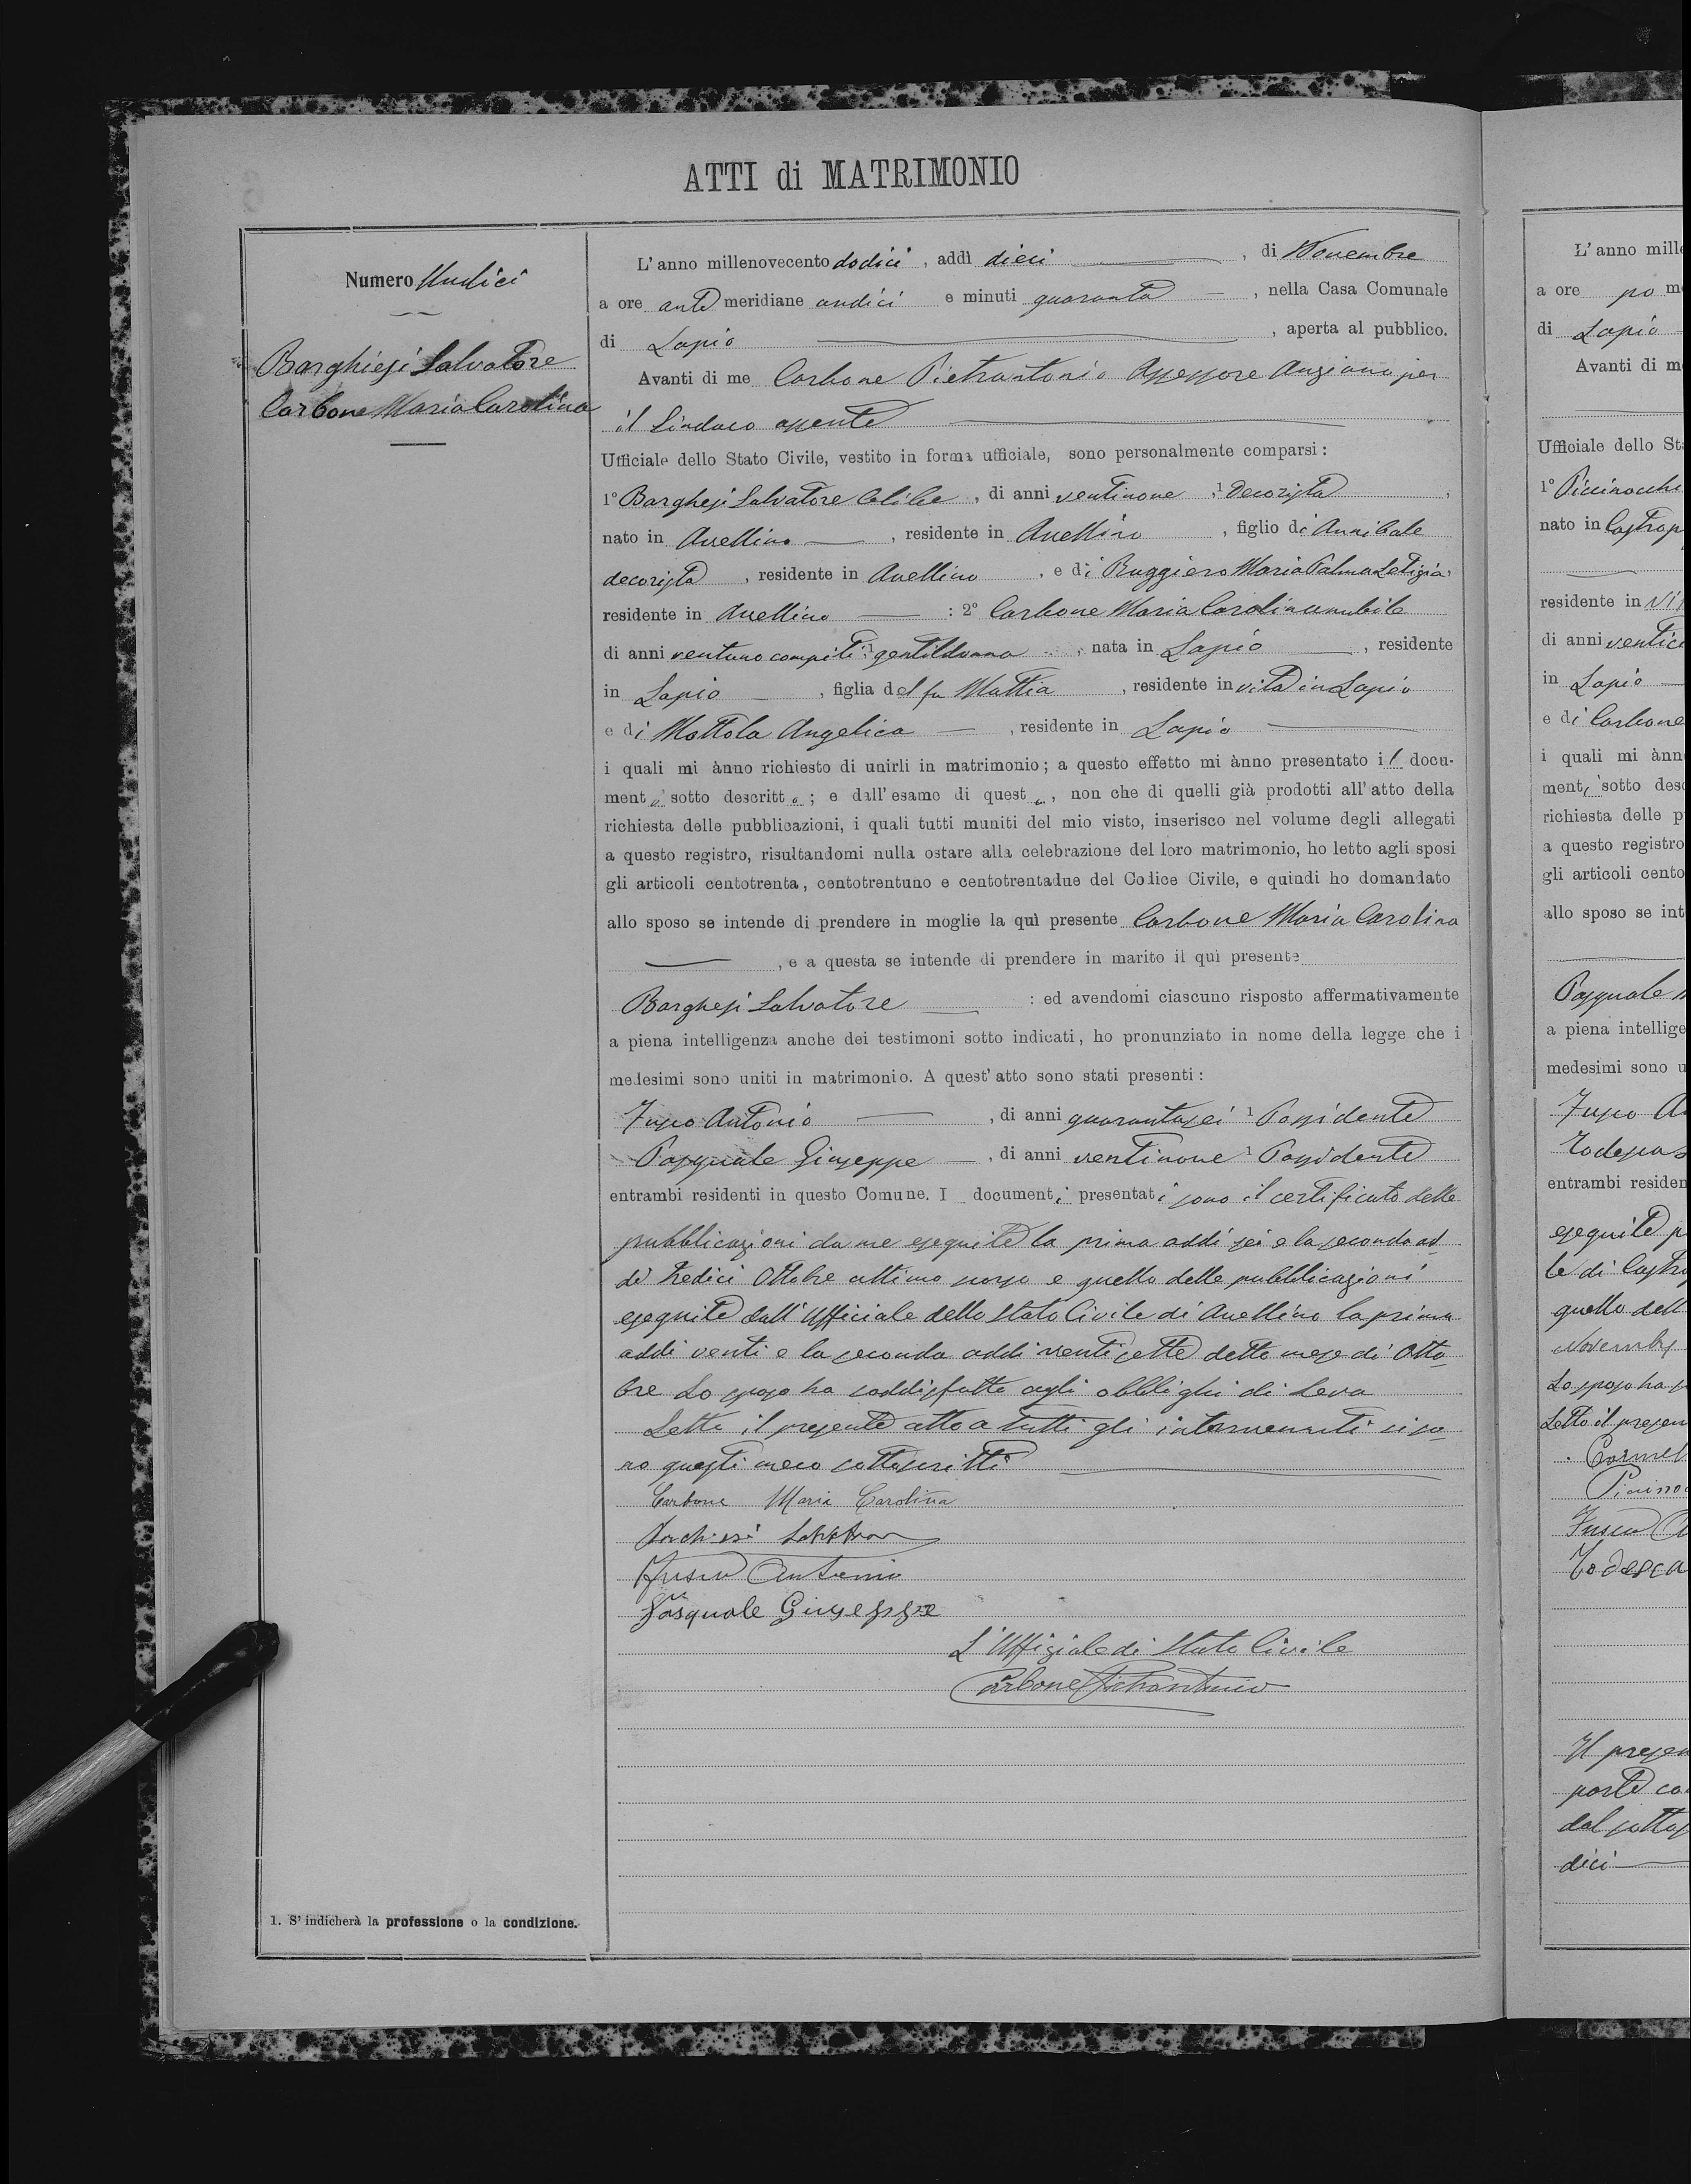 ATTI di MATRIMONIO
Numero Undici
Borghesi Salvatore
Carbone Maria Carolina
1. S' indicherà la professione o la condizione.
L' anno millenovecento dodici, addì dieci, di Novembre
a ore ante meridiane undici e minuti quaranta, nella Casa Comunale
di Lapio, aperta al pubblico.
Avanti di me Carbone Pietrantonio Assessore Anziano per
il Sindaco assente
Ufficiale dello Stato Civile, vestito in forma ufficiale, sono personalmente comparsi:
1° Borghesi Salvatore Celibe, di anni ventinove, ¹ Decorista,
nato in Avellino, residente in Avellino, figlio di Annibale
decorista, residente in Avellino, e di Ruggiero Maria Palma Letizia,
residente in Avellino: 2° Carbone Maria Carolina nubile
di anni ventuno compiti, ¹ gentildonna, nata in Lapio, residente
in Lapio, figlia del fu Mattia, residente in vita in Lapio
e di Mottola Angelica, residente in Lapio
i quali mi ànno richiesto di unirli in matrimonio; a questo effetto mi ànno presentato il docu-
mento sotto descritto; e dall' esame di questo, non che di quelli già prodotti all' atto della
richiesta delle pubblicazioni, i quali tutti muniti del mio visto, inserisco nel volume degli allegati
a questo registro, risultandomi nulla ostare alla celebrazione del loro matrimonio, ho letto agli sposi
gli articoli centotrenta, centotrentuno e centotrentadue del Codice Civile, e quindi ho domandato
allo sposo se intende di prendere in moglie la quì presente Carbone Maria Carolina
, e a questa se intende di prendere in marito il quì presente
Borghesi Salvatore: ed avendomi ciascuno risposto affermativamente
a piena intelligenza anche dei testimoni sotto indicati, ho pronunziato in nome della legge che i
medesimi sono uniti in matrimonio. A quest' atto sono stati presenti:
Fusco Antonio, di anni quarantasei ¹ Possidente
Pasquale Giuseppe, di anni ventinove ¹ Possidente
entrambi residenti in questo Comune. I documenti presentati sono il certificato delle
pubblicazioni da me eseguite la prima addì sei e la seconda ad-
dì tredici Ottobre ultimo scorso e quello delle pubblicazioni
eseguite dall' Ufficiale dello Stato Civile di Avellino la prima
addì venti e la seconda addì ventisette detto mese di Otto-
bre Lo sposo ha soddisfatto agli obblighi di leva
Letto il presente atto a tutti gli intervenuti si so-
no questi meco sottoscritti
Carbone Maria Carolina
Fusco Antonio
Pasquale Giuseppe
L' Uffiziale di Stato Civile
Carbone Pietrantonio
L' anno mille
a ore po m
di Lapio
Avanti di m
Ufficiale dello St
1°
nato in
residente in
di anni ventic
in Lapio
e di Carbone
i quali mi ànn
ment sotto desc
richiesta delle p
a questo registro
gli articoli cento
allo sposo se int
Pasquale
a piena intellige
medesimi sono u
Fusco A
entrambi residen
eseguite p
le di Castro
quello dell
Novembre
Lo sposo ha
Letto il presen
Carmel
Fusco A
Todesca
Il presen
parte co
dal sottos
dici